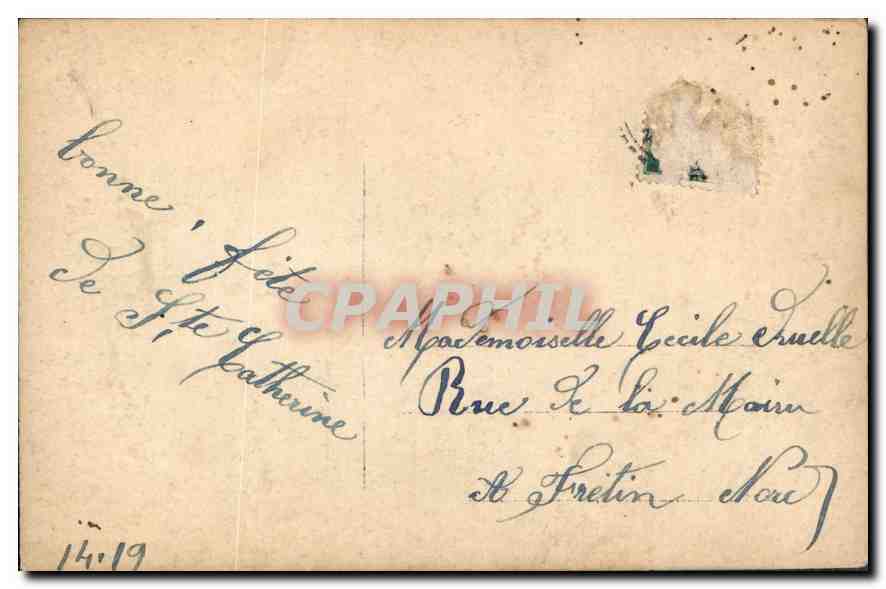 bonne fête
de Ste Catherine
Mademoiselle Cécile Druelle
Rue de la Mairie
A Frétin Nord
14.19
CPAPHIL